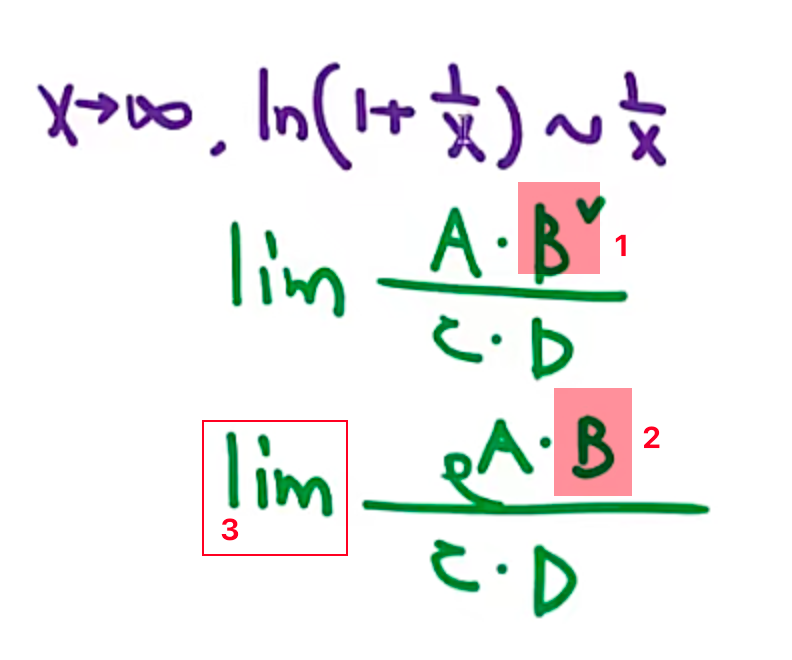 x→∞, ln(1+1/x) ~ 1/x
lim (A·B)/(C·D) 1
lim (A·B)/(C·D) 2
3